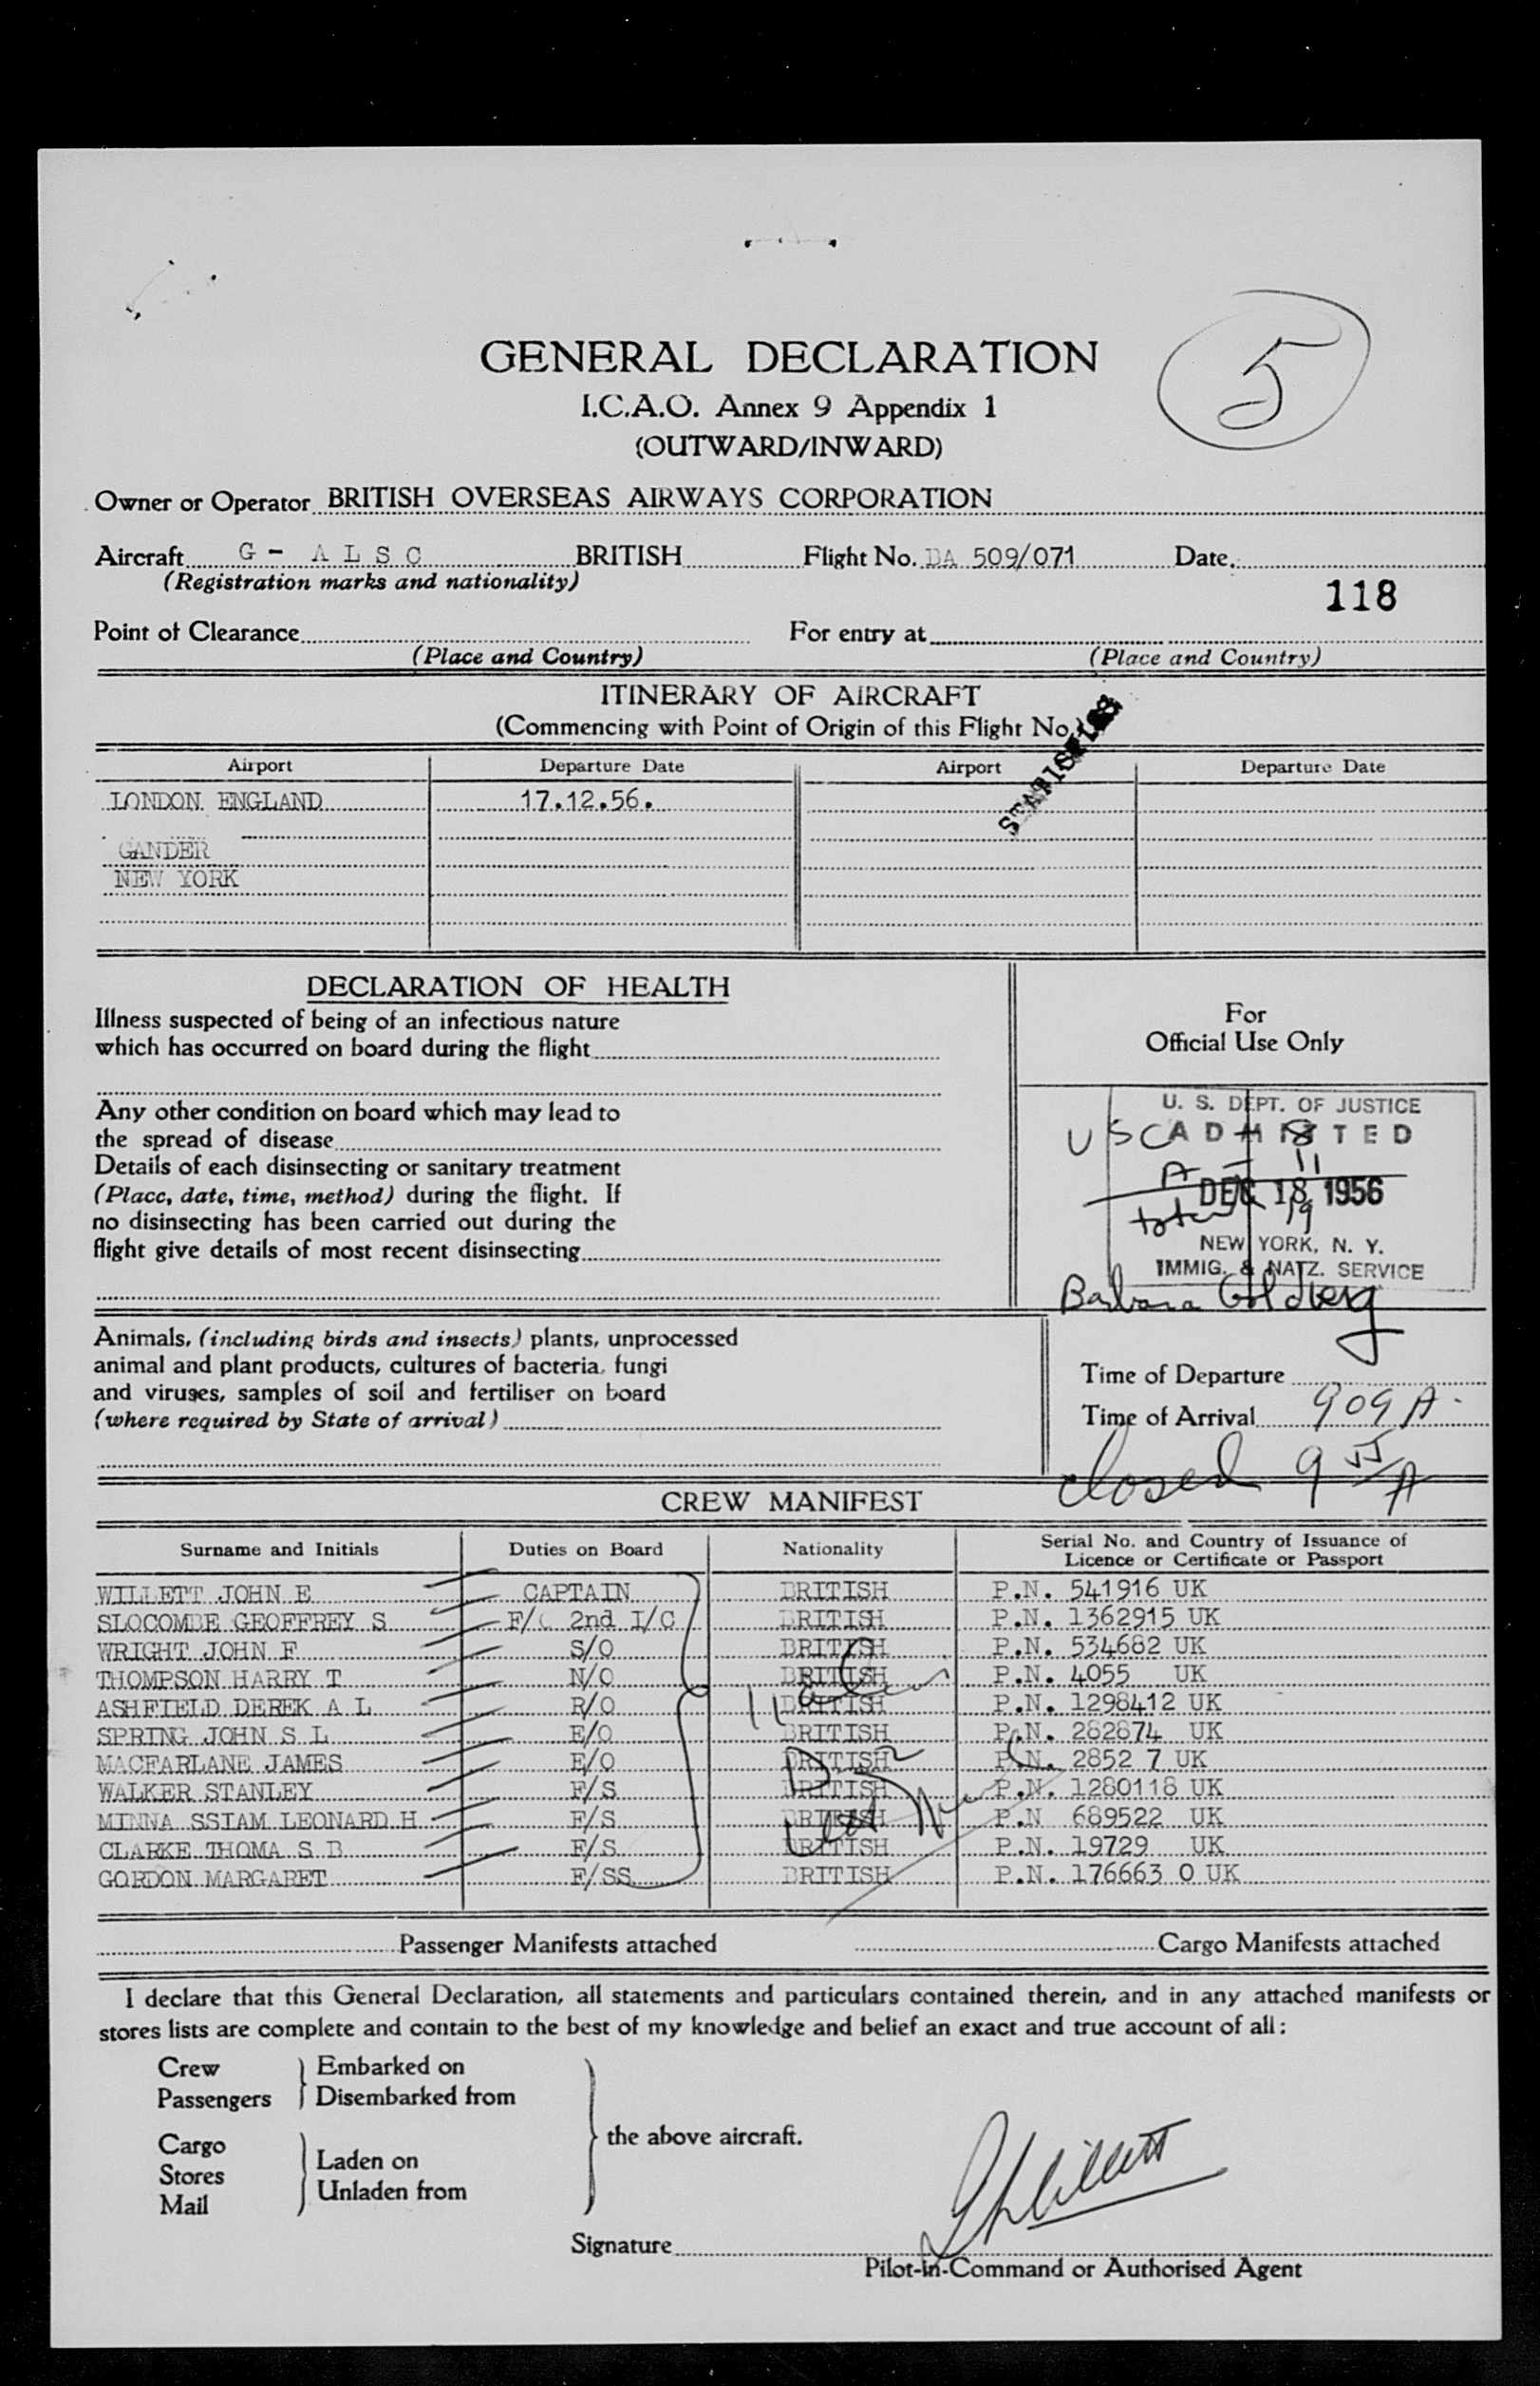 5
GENERAL DECLARATION
I.C.A.O. Annex 9 Appendix 1
(OUTWARD/INWARD)
Owner or Operator BRITISH OVERSEAS AIRWAYS CORPORATION
Aircraft G - A L S C BRITISH Flight No. BA 509/071 Date
(Registration marks and nationality)
118
Point of Clearance For entry at
(Place and Country) (Place and Country)
ITINERARY OF AIRCRAFT
(Commencing with Point of Origin of this Flight No.)
STATISTICS
Airport Departure Date Airport Departure Date
LONDON ENGLAND 17.12.56.
GANDER
NEW YORK
DECLARATION OF HEALTH
Illness suspected of being of an infectious nature
which has occurred on board during the flight
Any other condition on board which may lead to
the spread of disease
Details of each disinsecting or sanitary treatment
(Place, date, time, method) during the flight. If
no disinsecting has been carried out during the
flight give details of most recent disinsecting
For
Official Use Only
U. S. DEPT. OF JUSTICE
ADMITTED
USC 8
A - 11
DEC 18 1956
total 19
NEW YORK, N. Y.
IMMIG. & NATZ. SERVICE
Barbara Goldberg
Animals, (including birds and insects) plants, unprocessed
animal and plant products, cultures of bacteria, fungi
and viruses, samples of soil and fertiliser on board
(where required by State of arrival)
Time of Departure
Time of Arrival 909 A
Closed 9 55 A
CREW MANIFEST
Surname and Initials Duties on Board Nationality Serial No. and Country of Issuance of
Licence or Certificate or Passport
WILLETT JOHN E CAPTAIN BRITISH P.N. 541916 UK
SLOCOMBE GEOFFREY S F/O 2nd I/C BRITISH P.N. 1362915 UK
WRIGHT JOHN F S/O BRITISH P.N. 534682 UK
THOMPSON HARRY T N/O BRITISH P.N. 4055 UK
ASHFIELD DEREK A L R/O BRITISH P.N. 1298412 UK
SPRING JOHN S L E/O BRITISH P.N. 282874 UK
MACFARLANE JAMES E/O BRITISH P.N. 2852 7 UK
WALKER STANLEY F/S BRITISH P.N. 1280118 UK
MINNA SSIAM LEONARD H F/S BRITISH P.N 689522 UK
CLARKE THOMA S B F/S BRITISH P.N. 19729 UK
GORDON MARGARET F/SS BRITISH P.N. 176663 0 UK
Passenger Manifests attached Cargo Manifests attached
I declare that this General Declaration, all statements and particulars contained therein, and in any attached manifests or
stores lists are complete and contain to the best of my knowledge and belief an exact and true account of all:
Crew Embarked on
Passengers Disembarked from
the above aircraft.
Cargo
Stores Laden on
Mail Unladen from
Signature
Pilot-in-Command or Authorised Agent